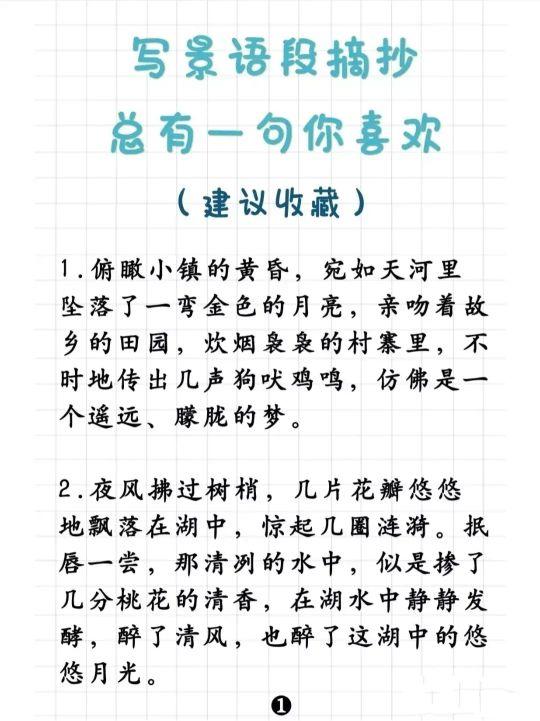 写景语段摘抄
总有一句你喜欢
（建议收藏）
1.俯瞰小镇的黄昏，宛如天河里
坠落了一弯金色的月亮，亲吻着故
乡的田园，炊烟袅袅的村寨里，不
时地传出几声狗吠鸡鸣，仿佛是一
个遥远、朦胧的梦。
2.夜风拂过树梢，几片花瓣悠悠
地飘落在湖中，惊起几圈涟漪。抿
唇一尝，那清冽的水中，似是掺了
几分桃花的清香，在湖水中静静发
酵，醉了清风，也醉了这湖中的悠
悠月光。
1